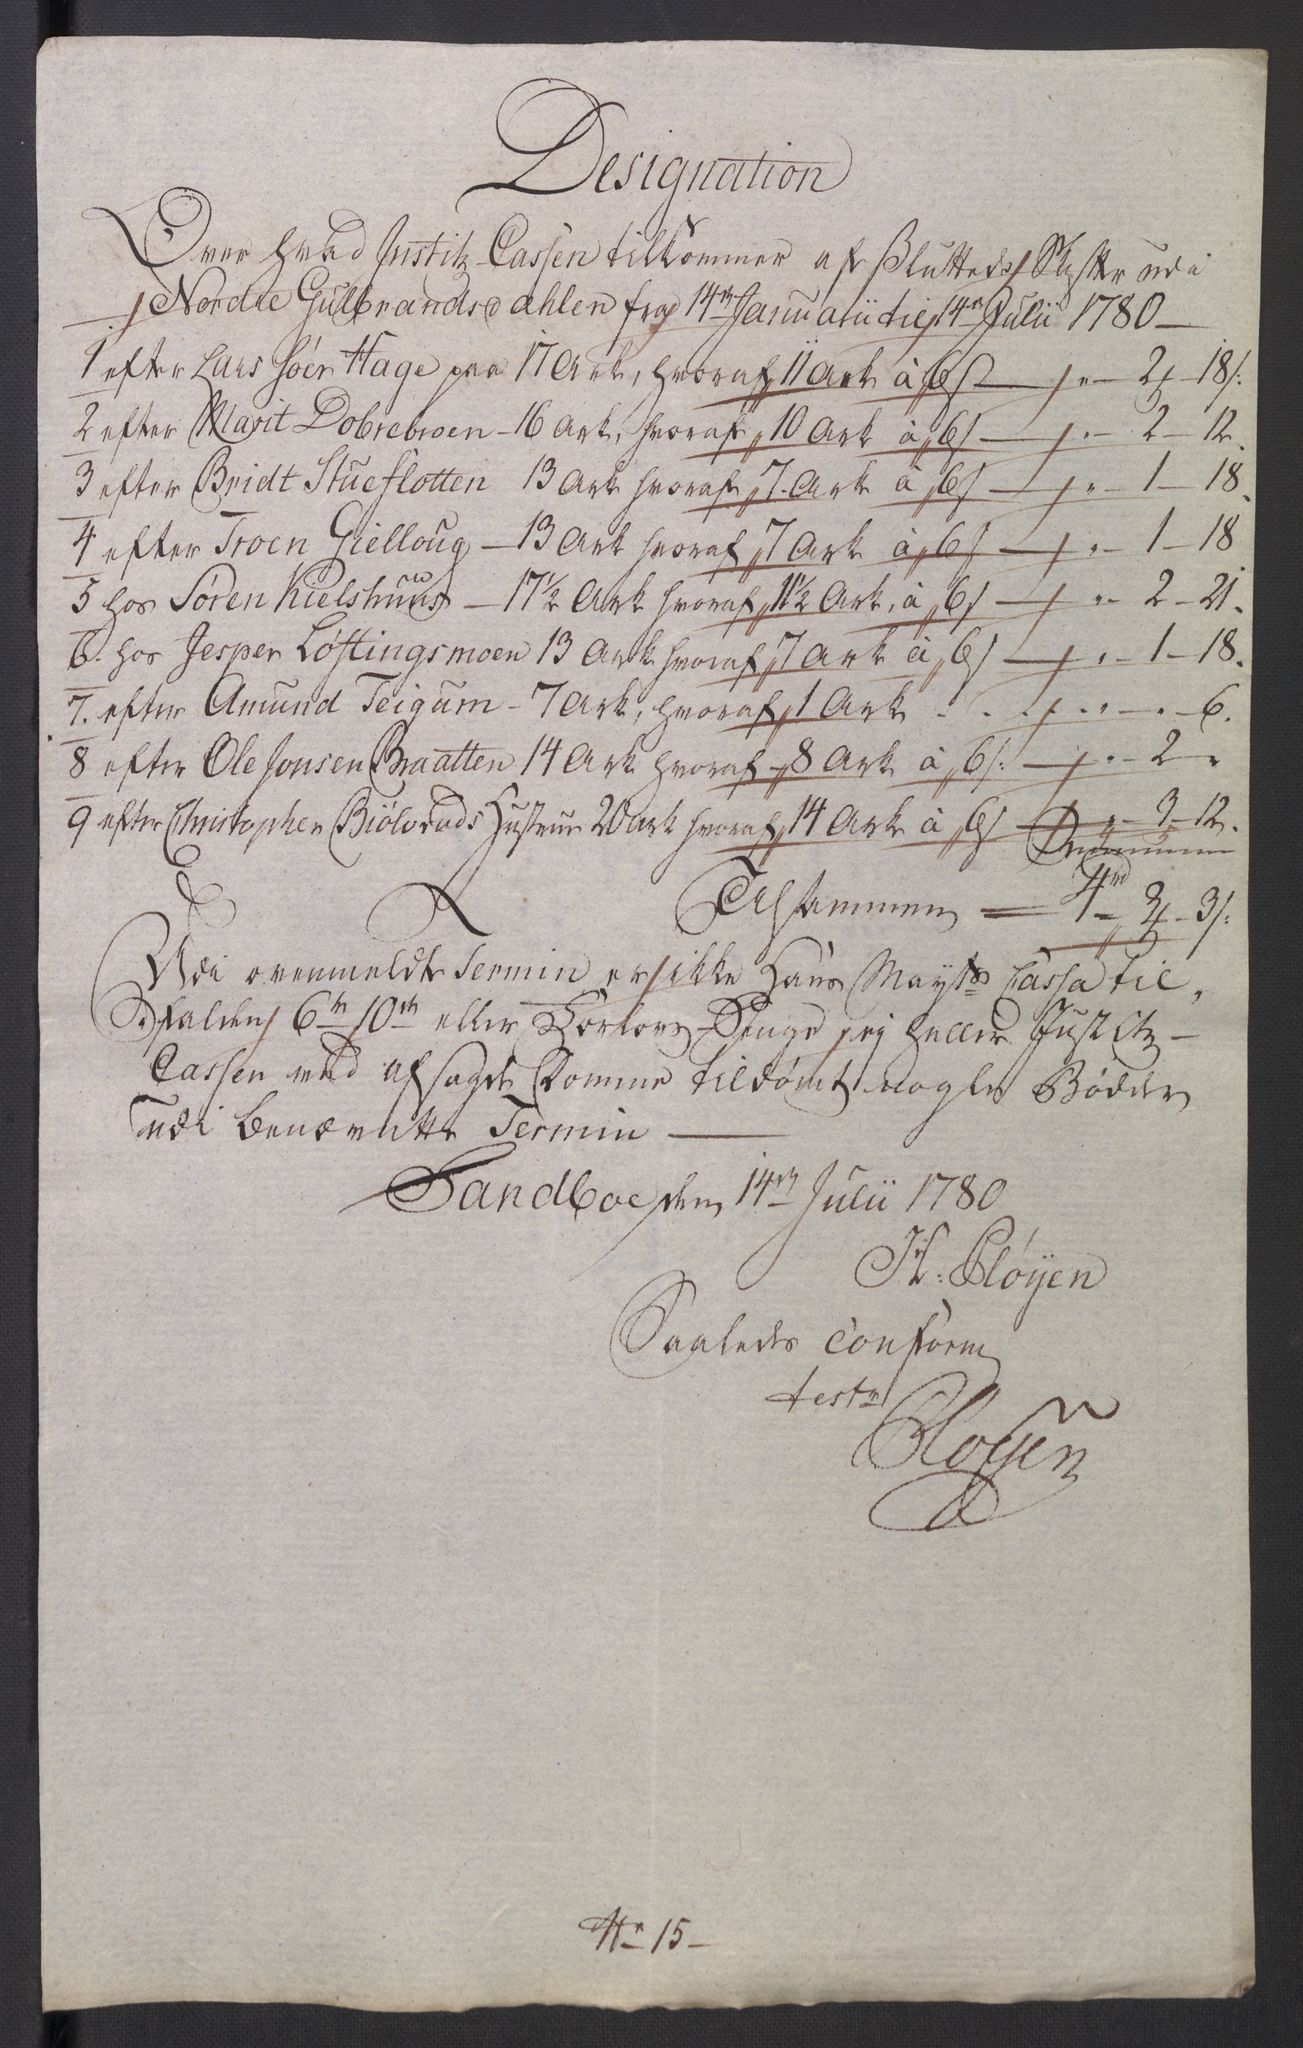 Designation
Over hvad Justitz Cassen tilkommer af Sluttede Skifter udi
Nordre Gulbrandsdahlen fra 14de Januarii til 14de Julii 1780 —
1 efter Lars Söer Hage paa 17 Ark, hvoraf 11 Ark à 6 s — " — 2 — 18 s:
2 efter Marit Dobrebroen — 16 Ark, hvoraf 10 Ark à 6 s — " — 2 — 12.
3 efter Bridt Stueflotten 13 Ark hvoraf 7 Ark à 6 s — " — 1 — 18.
4 efter Troen Gielloug — 13 Ark hvoraf 7 Ark à 6 s — " — 1 — 18
5 hos Søren Kielshuus — 17½ Ark hvoraf 11½ Ark, à 6 s — " — 2 — 21.
6. hos Jesper Löftingsmoen 13 Ark hvoraf 7 Ark à 6 s — " — 1 — 18.
7. efter Amund Teigum — 7 Ark, hvoraf 1 Ark . . . " — " — 6.
8 efter Ole Jonsen Braatten 14 Ark hvoraf 8 Ark à 6 s: — " — 2 "
9 efter Christopher Biölvruds Hustrue 20 Ark hvoraf 14 Ark à 6 s — " — 3 — 12.
Tilsammen — 4 rd — 3 — 3 s:
Udi ovenmeldte Termin er ikke Hans Mayts Cassa til-
falden 6te 10de eller Penge ej heller Justitz-
Cassen ved afsagde Domme tildömt nogle Bøder
udi benævnte Termin —
Sandboe den 14de Julii 1780
H: Pløyen
Saaledes conform
test
Pløyen
No 15 —